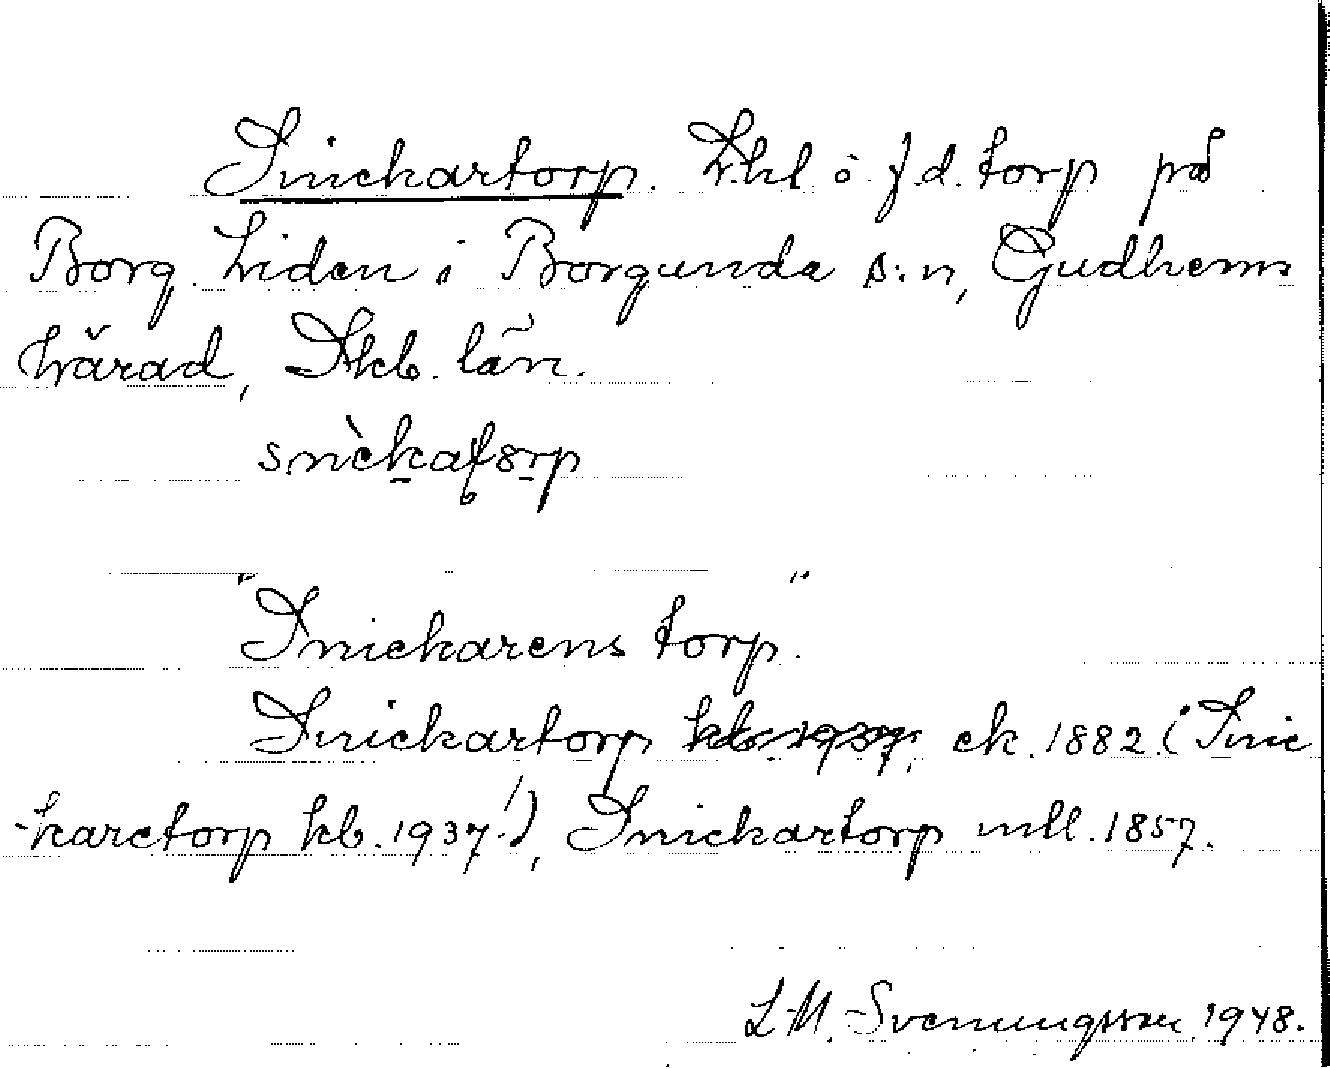 Snickartorp. Lhl ö f.d. torp på
Borg. Liden i Borgunda s:n, Gudhems
härad, Skb. län.
snìckaʈorp
"Snickarens torp".
Snickartorp kb. 1937, ek. 1882 (Snic
-karetorp kb. 1937!), Snickartorp utll. 1857.
L-M. Svenungsson 1948.